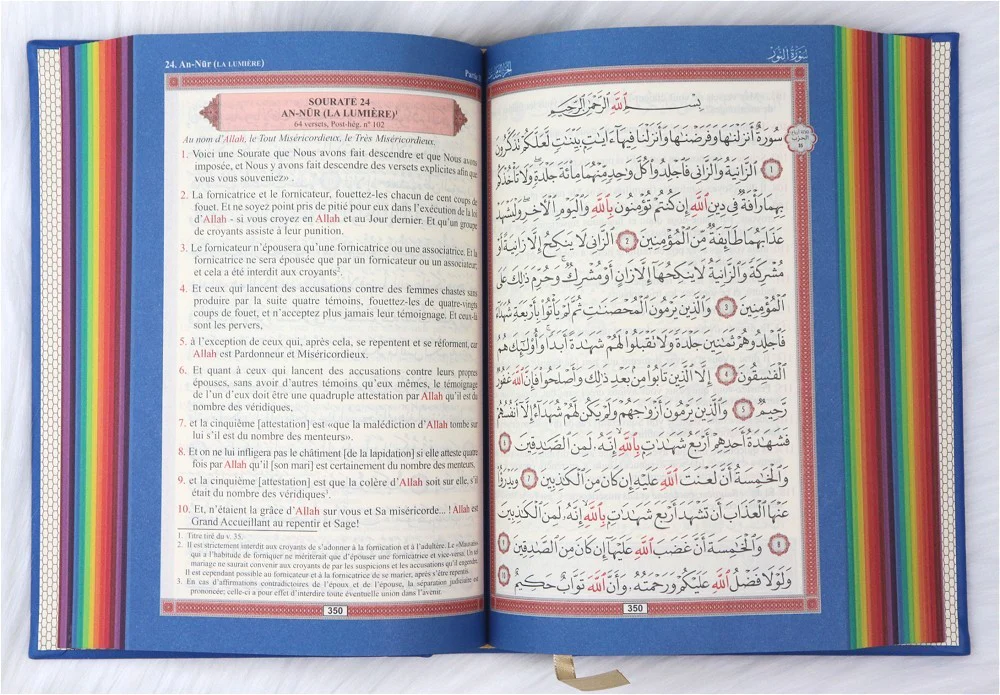 24. An-Nūr (LA LUMIÈRE)
SOURATE 24
AN-NŪR (LA LUMIÈRE)¹
64 versets, Post-hég. n° 102
Au nom d'Allah, le Tout Miséricordieux, le Très Miséricordieux.
1. Voici une Sourate que Nous avons fait descendre et que Nous avons
imposée, et Nous y avons fait descendre des versets explicites afin que
vous vous souveniez» .
2. La fornicatrice et le fornicateur, fouettez-les chacun de cent coups de
fouet. Et ne soyez point pris de pitié pour eux dans l'exécution de la loi
d'Allah - si vous croyez en Allah et au Jour dernier. Et qu'un groupe
de croyants assiste à leur punition.
3. Le fornicateur n'épousera qu'une fornicatrice ou une associatrice. Et la
fornicatrice ne sera épousée que par un fornicateur ou un associateur;
et cela a été interdit aux croyants².
4. Et ceux qui lancent des accusations contre des femmes chastes sans
produire par la suite quatre témoins, fouettez-les de quatre-vingts
coups de fouet, et n'acceptez plus jamais leur témoignage. Et ceux-là
sont les pervers,
5. à l'exception de ceux qui, après cela, se repentent et se réforment, car
Allah est Pardonneur et Miséricordieux.
6. Et quant à ceux qui lancent des accusations contre leurs propres
épouses, sans avoir d'autres témoins qu'eux mêmes, le témoignage
de l'un d'eux doit être une quadruple attestation par Allah qu'il est du
nombre des véridiques,
7. et la cinquième [attestation] est «que la malédiction d'Allah tombe sur
lui s'il est du nombre des menteurs».
8. Et on ne lui infligera pas le châtiment [de la lapidation] si elle atteste quatre
fois par Allah qu'il [son mari] est certainement du nombre des menteurs,
9. et la cinquième [attestation] est que la colère d'Allah soit sur elle, s'il
était du nombre des véridiques³.
10. Et, n'étaient la grâce d'Allah sur vous et Sa miséricorde... ! Allah est
Grand Accueillant au repentir et Sage!
1. Titre tiré du v. 35.
2. Il est strictement interdit aux croyants de s'adonner à la fornication et à l'adultère. Le «Musulman»
qui a l'habitude de forniquer ne mériterait que d'épouser une fornicatrice et vice-versa. Un tel
mariage ne saurait convenir aux croyants de par les suspicions et les accusations qu'il engendre.
Il est cependant possible au fornicateur et à la fornicatrice de se marier, après s'être repentis.
3. En cas d'affirmations contradictoires de l'époux et de l'épouse, la séparation judiciaire est
prononcée; celle-ci a pour effet d'interdire toute éventuelle union dans l'avenir.
350
سُورَةُ النُّور
بِسْمِ اللَّهِ الرَّحْمَٰنِ الرَّحِيمِ
سُورَةٌ أَنزَلْنَٰهَا وَفَرَضْنَٰهَا وَأَنزَلْنَا فِيهَآ ءَايَٰتٍۭ بَيِّنَٰتٍ لَّعَلَّكُمْ تَذَكَّرُونَ
١ ٱلزَّانِيَةُ وَٱلزَّانِى فَٱجْلِدُوا۟ كُلَّ وَٰحِدٍ مِّنْهُمَا مِا۟ئَةَ جَلْدَةٍ ۖ وَلَا تَأْخُذْكُم
بِهِمَا رَأْفَةٌ فِى دِينِ ٱللَّهِ إِن كُنتُمْ تُؤْمِنُونَ بِٱللَّهِ وَٱلْيَوْمِ ٱلْءَاخِرِ ۖ وَلْيَشْهَدْ
عَذَابَهُمَا طَآئِفَةٌ مِّنَ ٱلْمُؤْمِنِينَ ٢ ٱلزَّانِى لَا يَنكِحُ إِلَّا زَانِيَةً أَوْ
مُشْرِكَةً وَٱلزَّانِيَةُ لَا يَنكِحُهَآ إِلَّا زَانٍ أَوْ مُشْرِكٌ ۚ وَحُرِّمَ ذَٰلِكَ عَلَى
ٱلْمُؤْمِنِينَ ٣ وَٱلَّذِينَ يَرْمُونَ ٱلْمُحْصَنَٰتِ ثُمَّ لَمْ يَأْتُوا۟ بِأَرْبَعَةِ شُهَدَآءَ
فَٱجْلِدُوهُمْ ثَمَٰنِينَ جَلْدَةً وَلَا تَقْبَلُوا۟ لَهُمْ شَهَٰدَةً أَبَدًا ۚ وَأُو۟لَٰٓئِكَ هُمُ
ٱلْفَٰسِقُونَ ٤ إِلَّا ٱلَّذِينَ تَابُوا۟ مِنۢ بَعْدِ ذَٰلِكَ وَأَصْلَحُوا۟ فَإِنَّ ٱللَّهَ غَفُورٌ
رَّحِيمٌ ٥ وَٱلَّذِينَ يَرْمُونَ أَزْوَٰجَهُمْ وَلَمْ يَكُن لَّهُمْ شُهَدَآءُ إِلَّآ أَنفُسُهُمْ
فَشَهَٰدَةُ أَحَدِهِمْ أَرْبَعُ شَهَٰدَٰتٍۭ بِٱللَّهِ ۙ إِنَّهُۥ لَمِنَ ٱلصَّٰدِقِينَ ٦
وَٱلْخَٰمِسَةُ أَنَّ لَعْنَتَ ٱللَّهِ عَلَيْهِ إِن كَانَ مِنَ ٱلْكَٰذِبِينَ ٧ وَيَدْرَؤُا۟
عَنْهَا ٱلْعَذَابَ أَن تَشْهَدَ أَرْبَعَ شَهَٰدَٰتٍۭ بِٱللَّهِ ۙ إِنَّهُۥ لَمِنَ ٱلْكَٰذِبِينَ
٨ وَٱلْخَٰمِسَةَ أَنَّ غَضَبَ ٱللَّهِ عَلَيْهَآ إِن كَانَ مِنَ ٱلصَّٰدِقِينَ ٩
وَلَوْلَا فَضْلُ ٱللَّهِ عَلَيْكُمْ وَرَحْمَتُهُۥ وَأَنَّ ٱللَّهَ تَوَّابٌ حَكِيمٌ ١٠
350